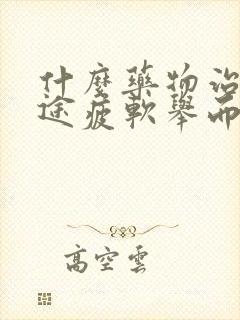 什麼藥物治
途疲軟舉而
高空雲